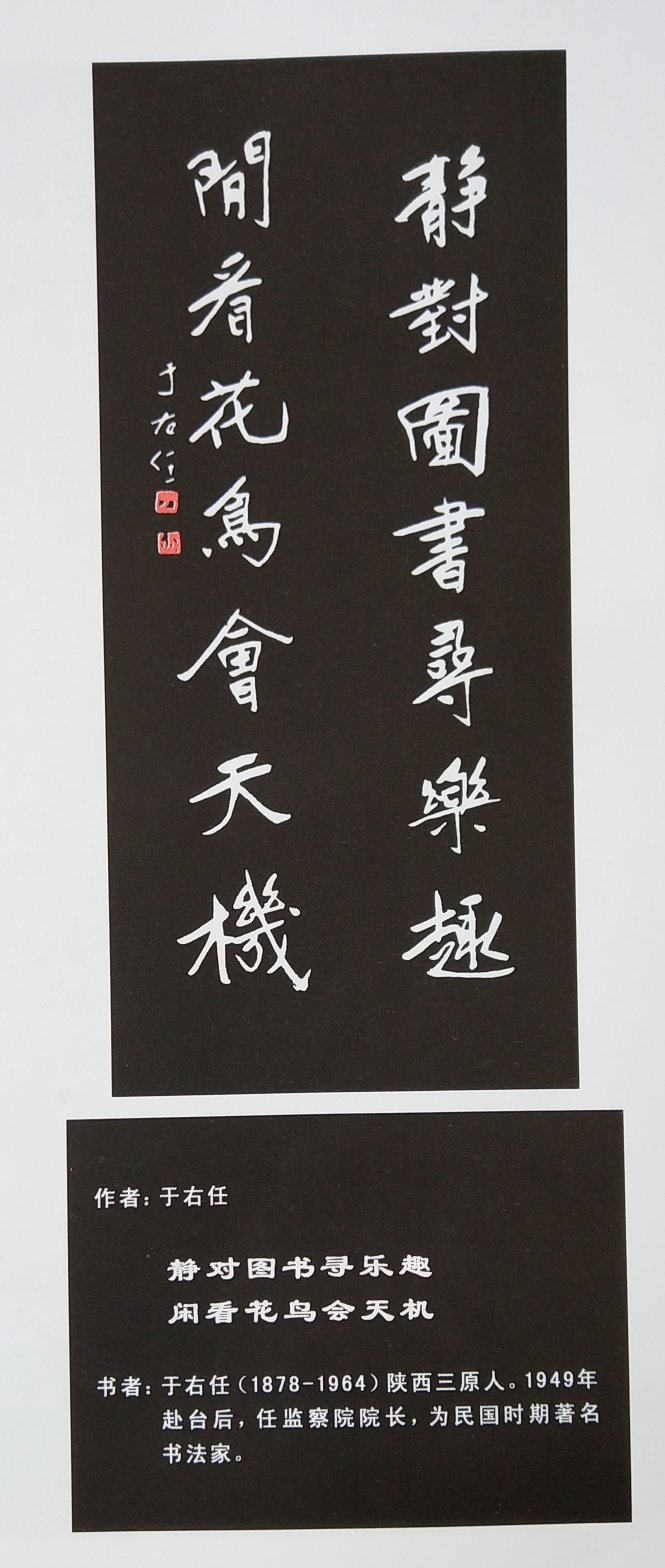 靜對圖書尋樂趣
閒看花鳥會天機
于右任
作者：于右任
静对图书寻乐趣
闲看花鸟会天机
书者：于右任（1878-1964）陕西三原人。1949年
赴台后，任监察院院长，为民国时期著名
书法家。